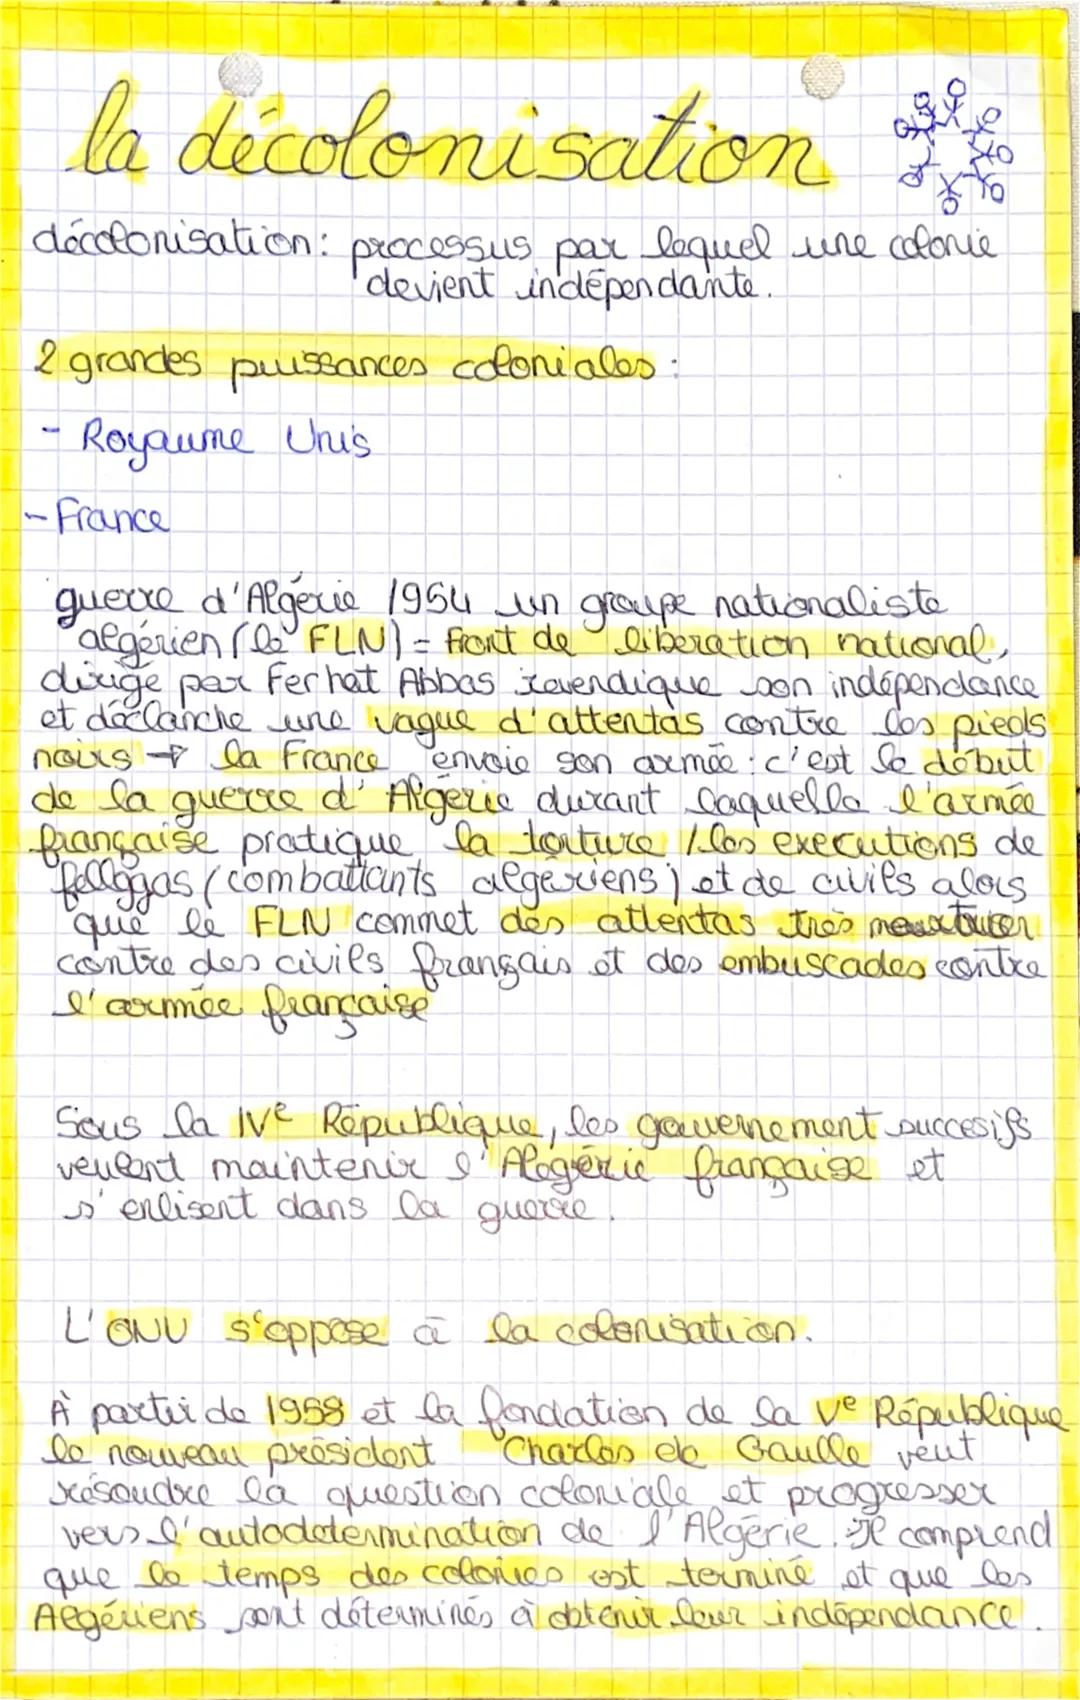 la décolonisation
décolonisation: processus par lequel une colonie
devient indépendante.
2 grandes puissances coloniales :
- Royaume Unis
- France
guerre d'Algérie 1954 un groupe nationaliste
algérien (le FLN) = front de liberation national,
dirigé par Ferhat Abbas revendique son indépendance
et déclanche une vague d'attentas contre les pieds
noirs → la France envoie son armée : c'est le début
de la guerre d'Algérie durant laquelle l'armée
française pratique la torture / les executions de
fellggas (combattants algeriens) et de civils alors
que le FLN commet des attentas très meurtrier
contre des civils français et des embuscades contre
l'armée française
Sous la IVe République, les gouvernement succesifs
veulent maintenir l'Algérie française et
s'enlisent dans la guerre.
L'ONU s'oppose à la colonisation.
À partir de 1958 et la fondation de la Ve République
le nouveau président Charles de Gaulle veut
résoudre la question coloniale et progresser
vers l'autodetermination de l'Algérie. Il comprend
que le temps des colonies est terminé et que les
Algériens sont déterminés à obtenir leur indépendance.